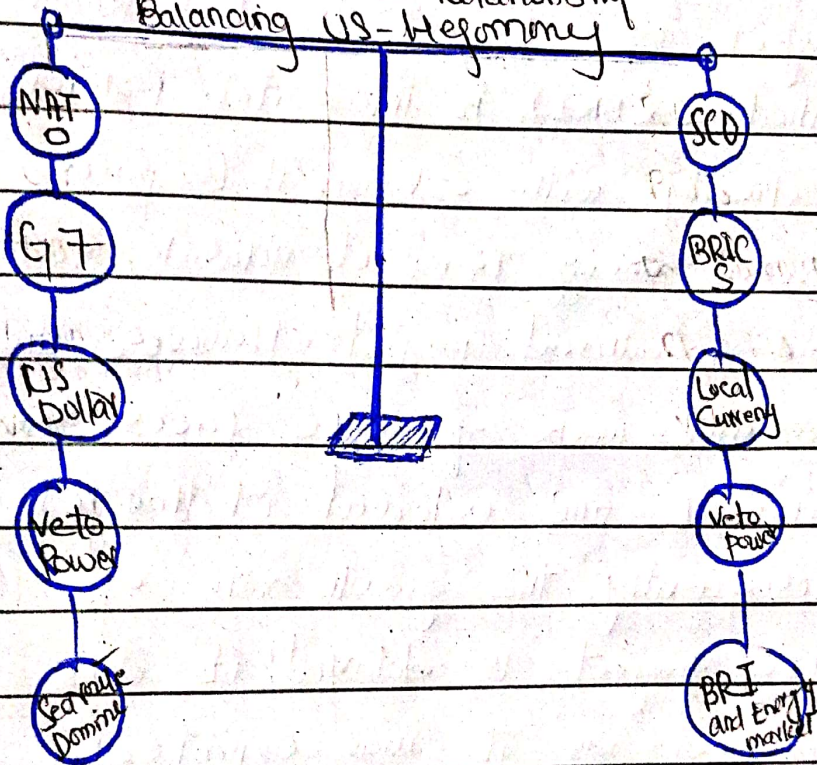 Balancing US-Hegomony
NAT
O
G7
US
Dollar
Veto
Power
Sea route
Domine
SCO
BRIC
S
Local
Currency
Veto
power
BRI
and Energy
market